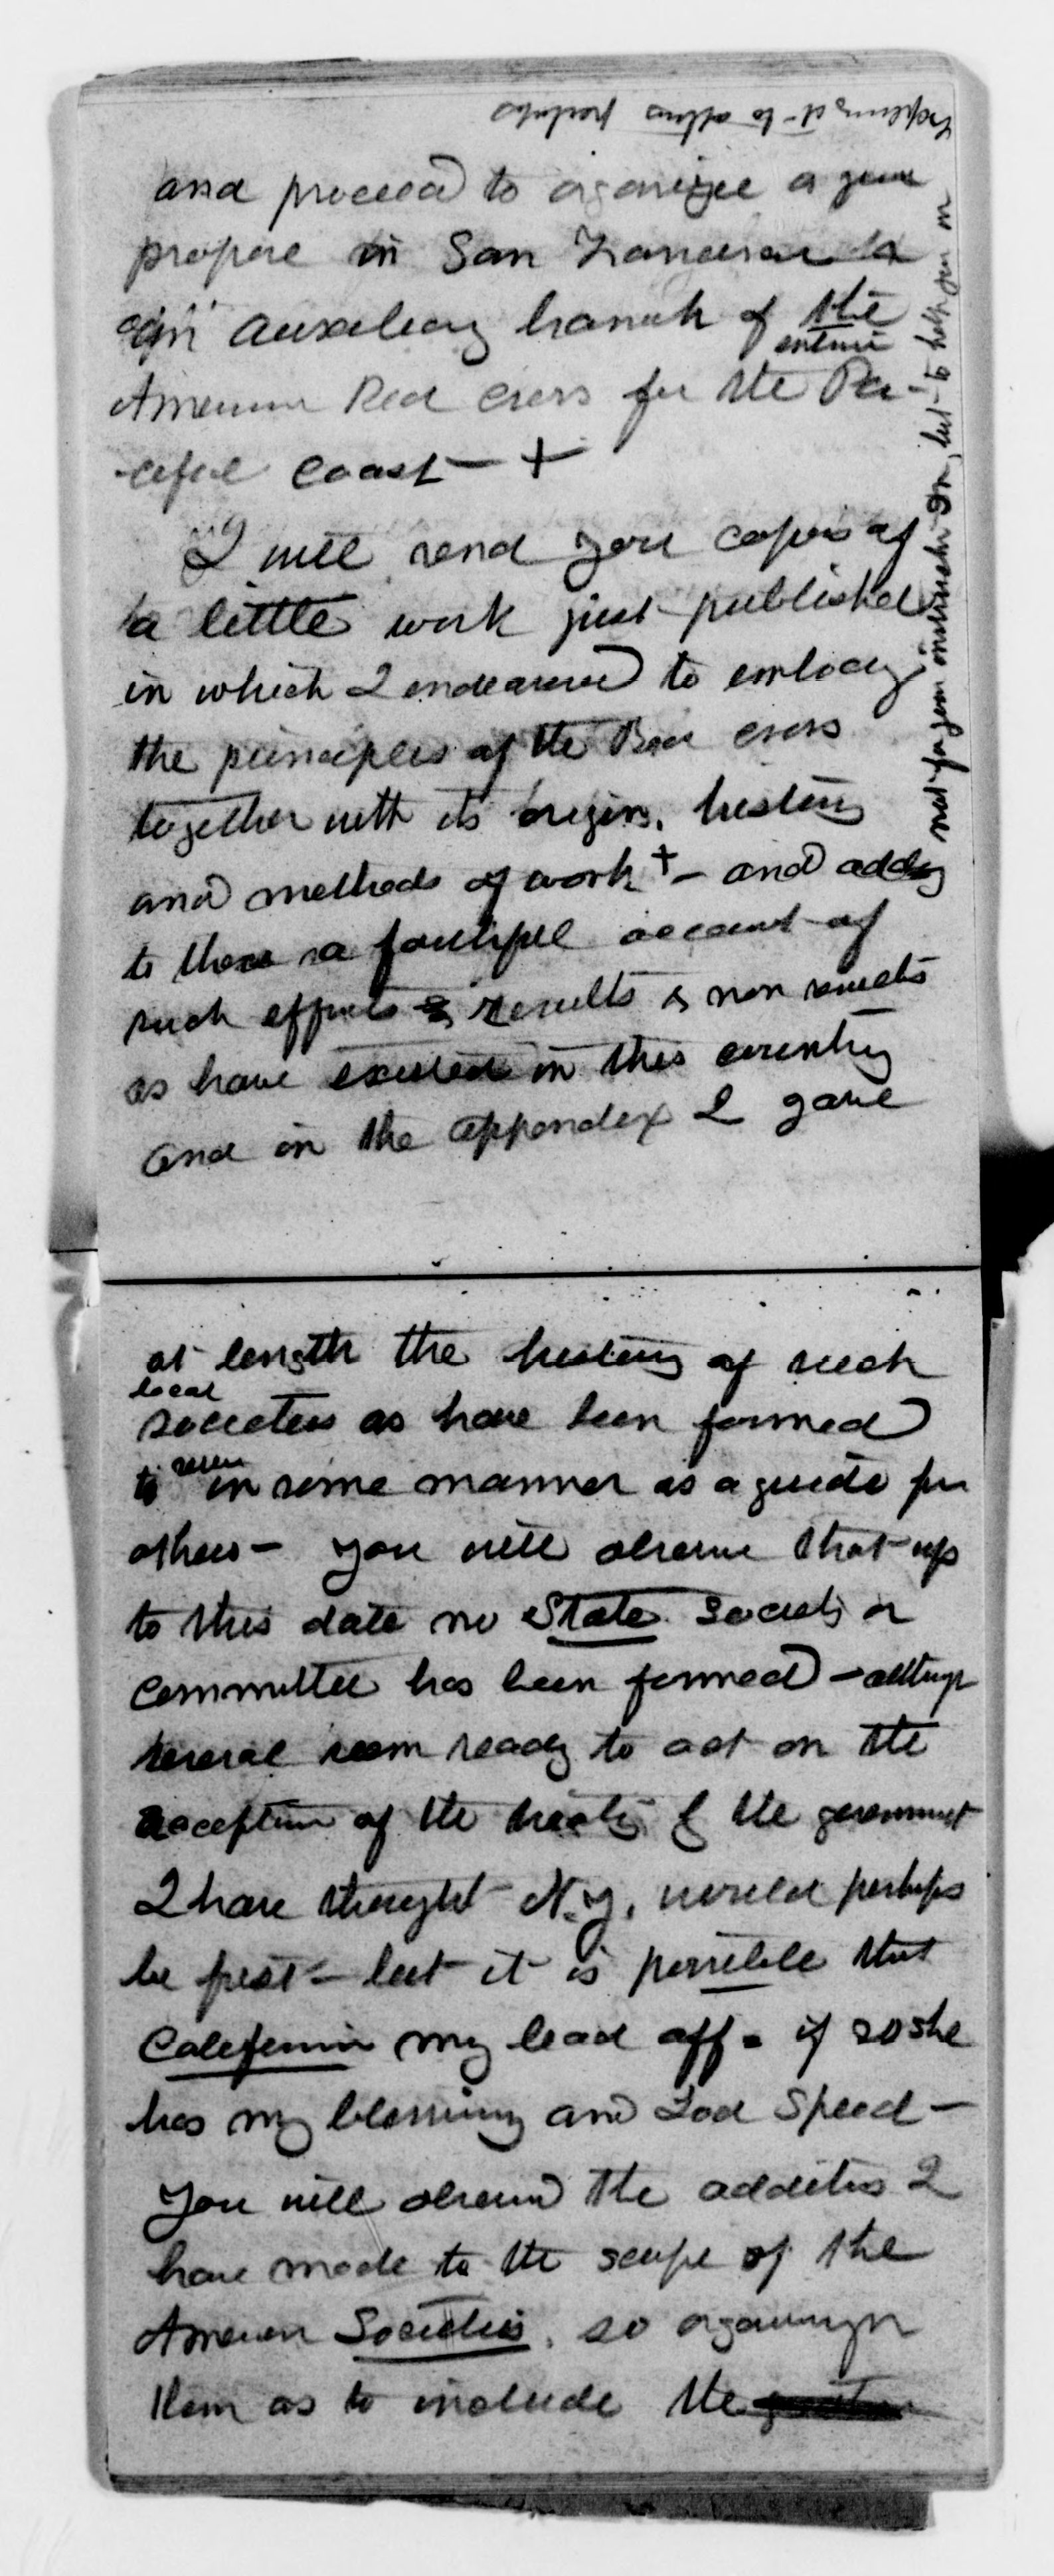 and proceed to organize as you
propose in San Francisco
an auxiliary branch of the
American Red Cross for the entire Pa-
-cific coast - +
I will send you copies of
a little work just published
in which I endeavored to embody
the principles of the Red Cross
together with its origin, history
and methods of work + - and adding
to these a faithful account of
such efforts & results & non results
as have existed in this country
and in the appendix I gave
not for your instruction Dr, but to help you in
explaining it to others
at length the history of such
local
societies as have been formed
to serve in some manner as a guide for
others - You will observe that up
to this date no State Society or
committee has been formed - although
several seem ready to act on the
acception of the treaty by the government
I have thought N.Y. would perhaps
be first - but it is possible that
California may lead off - if so she
has my blessing and God Speed -
You will observe the additions I
have made to the scope of the
American Societies, so organizing
them as to include the